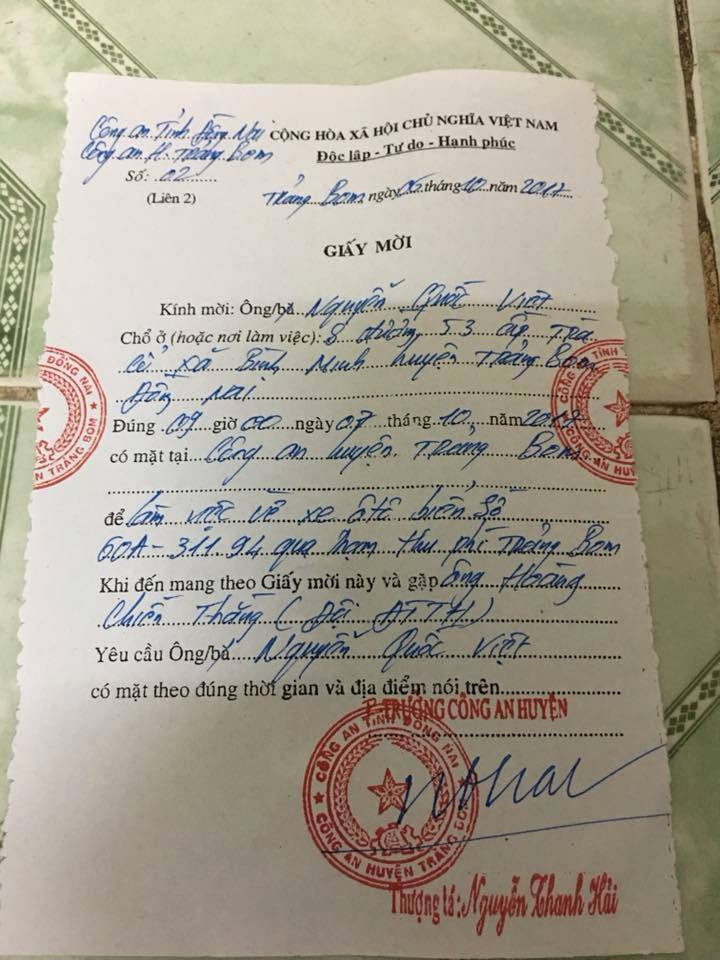 Công an Tỉnh Đồng Nai CỘNG HÒA XÃ HỘI CHỦ NGHĨA VIỆT NAM
Công an H. Trảng Bom Độc lập - Tự do - Hạnh phúc
Số: 02
(Liên 2) Trảng Bom, ngày 06 tháng 10 năm 2017
GIẤY MỜI
Kính mời: Ông/bà Nguyễn Quốc Việt
Chổ ở (hoặc nơi làm việc): 8 đường 53 ấp Trà
Cổ xã Bình Minh huyện Trảng Bom
Đồng Nai
Đúng 09 giờ 00 ngày 07 tháng 10, năm 2017
có mặt tại Công an huyện Trảng Bom
để làm việc về xe ôtô biển số
60A-311.94 qua trạm thu phí Trảng Bom
Khi đến mang theo Giấy mời này và gặp ông Hoàng
Chiến Thắng (Đội ĐTTH)
Yêu cầu Ông/bà Nguyễn Quốc Việt
có mặt theo đúng thời gian và địa điểm nói trên
P. TRƯỞNG CÔNG AN HUYỆN
CÔNG AN TỈNH ĐỒNG NAI
CÔNG AN HUYỆN TRẢNG BOM
Thượng tá: Nguyễn Thanh Hải